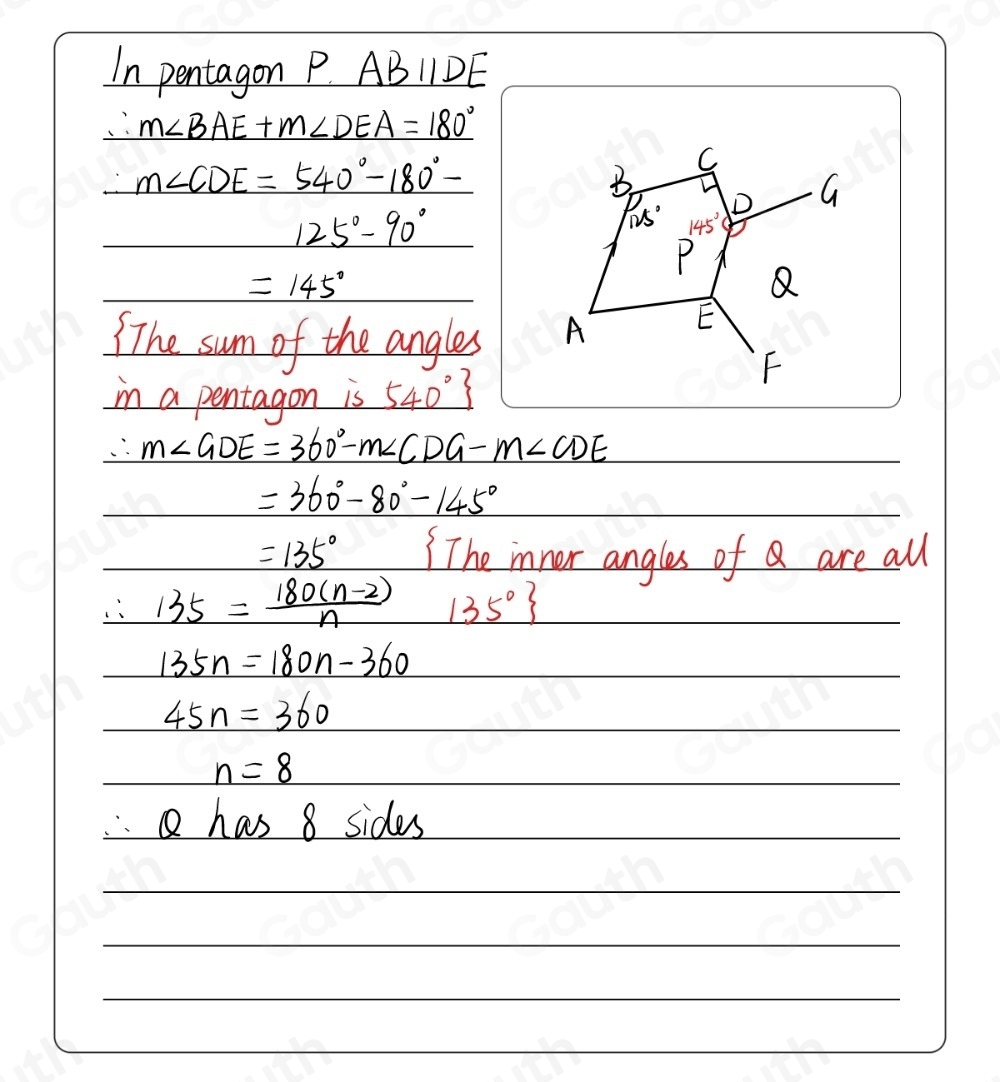 In pentagon P. AB∥DE
∴ m∠BAE + m∠DEA = 180°
∴ m∠CDE = 540° - 180° -
125° - 90°
= 145°
{The sum of the angles
in a pentagon is 540°}
B
C
G
125°
145°
D
P
Q
A
E
F
∴ m∠GDE = 360° - m∠CDG - m∠CDE
= 360° - 80° - 145°
= 135° {The inner angles of Q are all
∴ 135 = 180(n-2)/n 135°}
135n = 180n - 360
45n = 360
n = 8
∴ Q has 8 sides
Gauth